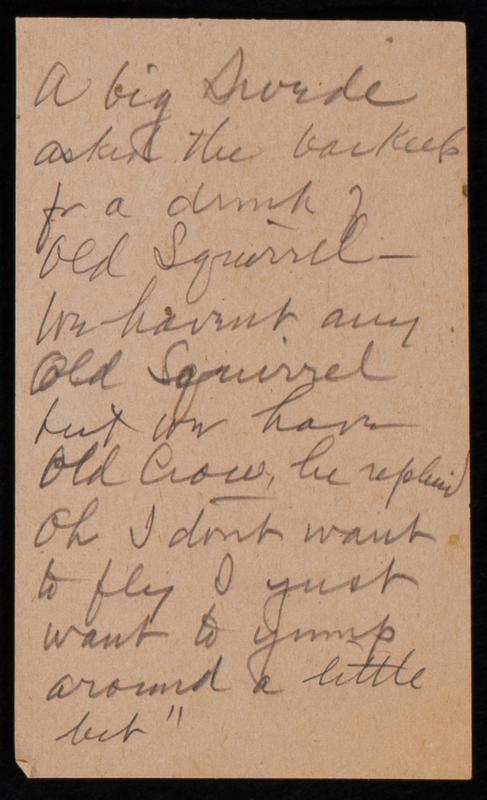 A big Swede
asked the barkeep
for a drink of
Old Squirrel —
We havent any
Old Squirrel
but we have
Old Crow, he replied
Oh I dont want
to fly I yust
want to yump
around a little
bit"